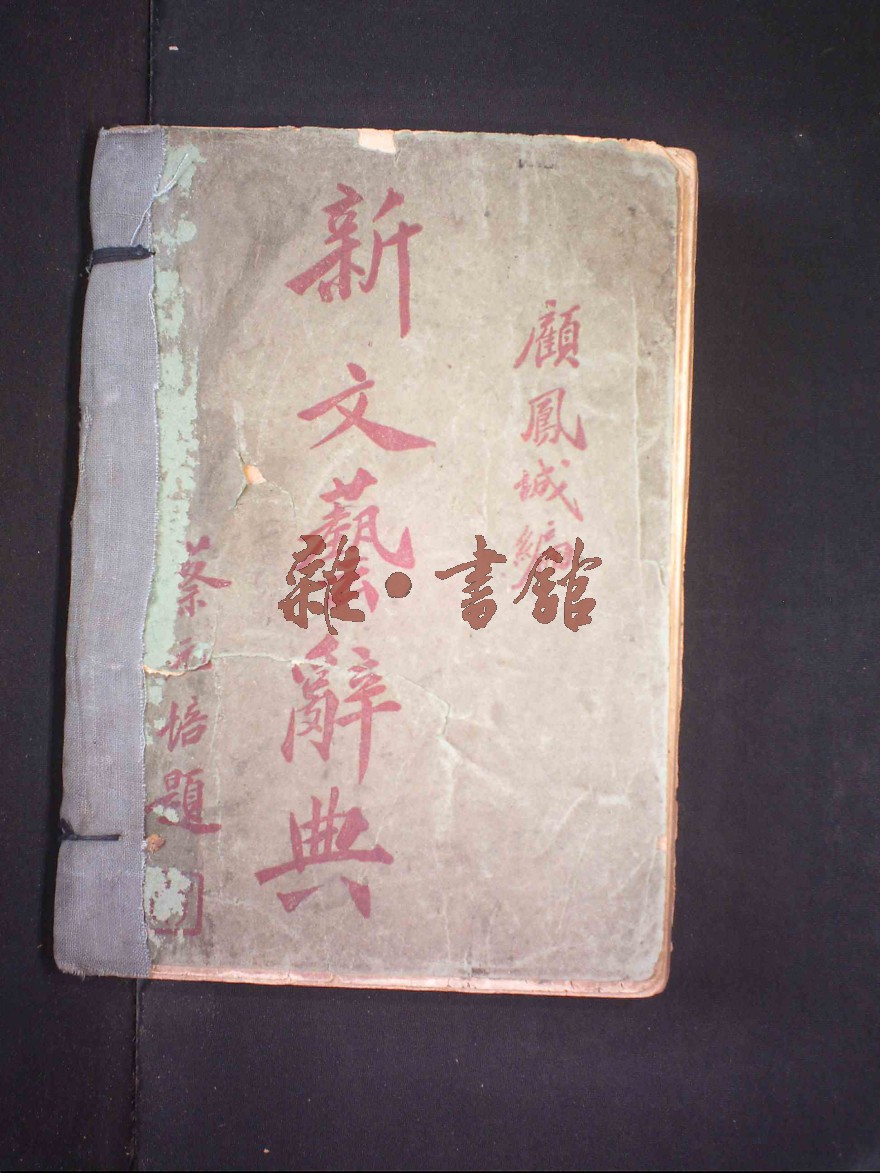 顧鳳城編
新文藝辭典
蔡元培題
雜·書館